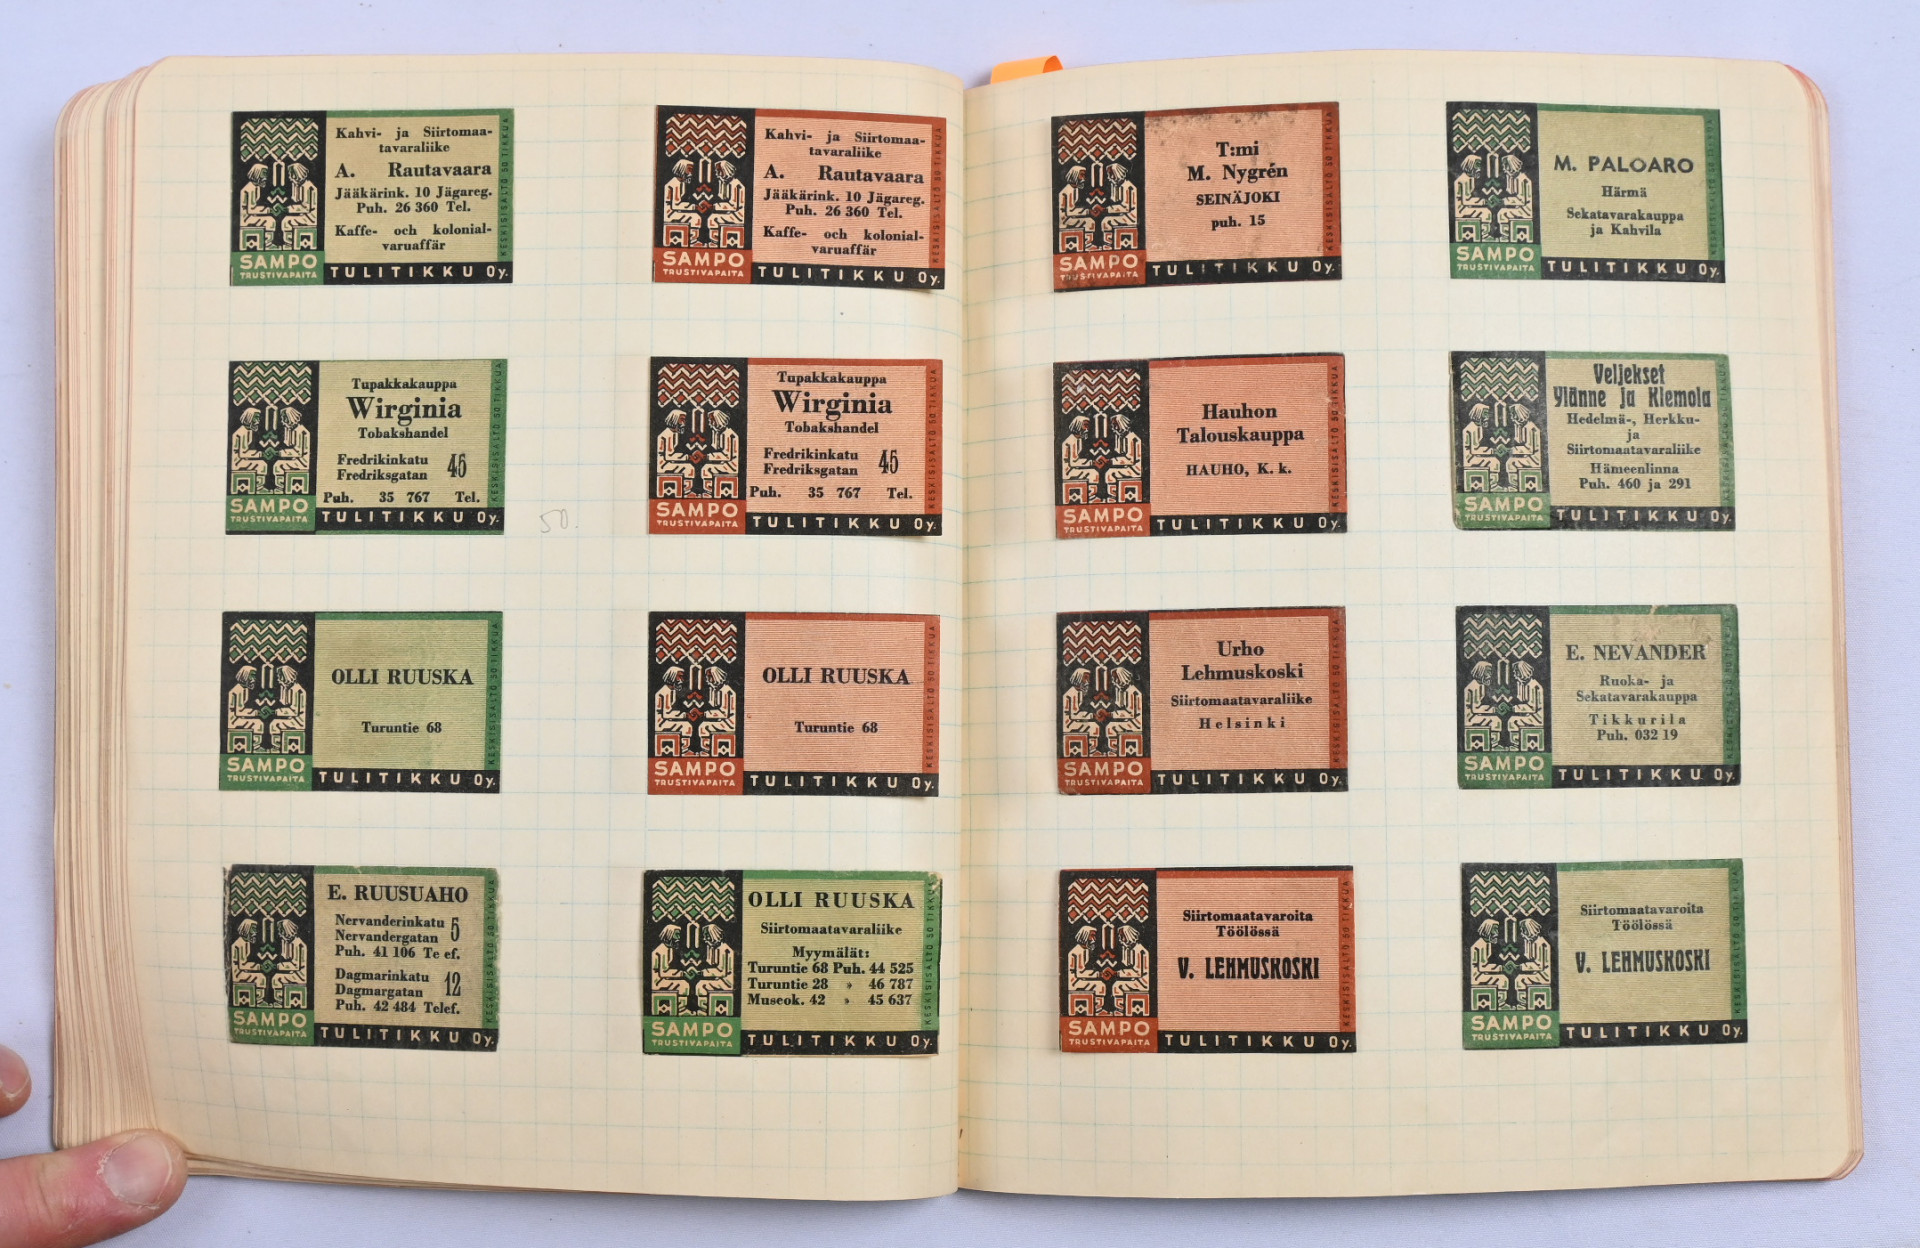 Kahvi- ja Siirtomaa-
tavaraliike
A. Rautavaara
Jääkärink. 10 Jägareg.
Puh. 26 360 Tel.
Kaffe- och kolonial-
varuaffär
KESKISISÄLTÖ 50 TIKKUA
SAMPO
TRUSTIVAPAITA
TULITIKKU Oy.
Kahvi- ja Siirtomaa-
tavaraliike
A. Rautavaara
Jääkärink. 10 Jägareg.
Puh. 26 360 Tel.
Kaffe- och kolonial-
varuaffär
KESKISISÄLTÖ 50 TIKKUA
SAMPO
TRUSTIVAPAITA
TULITIKKU Oy.
Tupakkakauppa
Wirginia
Tobakshandel
Fredrikinkatu 45
Fredriksgatan
Puh. 35 767 Tel.
KESKISISÄLTÖ 50 TIKKUA
SAMPO
TRUSTIVAPAITA
TULITIKKU Oy.
50.
Tupakkakauppa
Wirginia
Tobakshandel
Fredrikinkatu 45
Fredriksgatan
Puh. 35 767 Tel.
KESKISISÄLTÖ 50 TIKKUA
SAMPO
TRUSTIVAPAITA
TULITIKKU Oy.
OLLI RUUSKA
Turuntie 68
KESKISISÄLTÖ 50 TIKKUA
SAMPO
TRUSTIVAPAITA
TULITIKKU Oy.
OLLI RUUSKA
Turuntie 68
KESKISISÄLTÖ 50 TIKKUA
SAMPO
TRUSTIVAPAITA
TULITIKKU Oy.
E. RUUSUAHO
Nervanderinkatu 5
Nervandergatan
Puh. 41 106 Te ef.
Dagmarinkatu 12
Dagmargatan
Puh. 42 484 Telef.
KESKISISÄLTÖ 50 TIKKUA
SAMPO
TRUSTIVAPAITA
TULITIKKU Oy.
OLLI RUUSKA
Siirtomaatavaraliike
Myymälät:
Turuntie 68 Puh. 44 525
Turuntie 28 » 46 787
Museok. 42 » 45 637
KESKISISÄLTÖ 50 TIKKUA
SAMPO
TRUSTIVAPAITA
TULITIKKU Oy.
T:mi
M. Nygrén
SEINÄJOKI
puh. 15
KESKISISÄLTÖ 50 TIKKUA
SAMPO
TRUSTIVAPAITA
TULITIKKU Oy.
M. PALOARO
Härmä
Sekatavarakauppa
ja Kahvila
KESKISISÄLTÖ 50 TIKKUA
SAMPO
TRUSTIVAPAITA
TULITIKKU Oy.
Hauhon
Talouskauppa
HAUHO, K. k.
KESKISISÄLTÖ 50 TIKKUA
SAMPO
TRUSTIVAPAITA
TULITIKKU Oy.
Veljekset
Ylänne ja Klemola
Hedelmä-, Herkku-
ja
Siirtomaatavaraliike
Hämeenlinna
Puh. 460 ja 291
KESKISISÄLTÖ 50 TIKKUA
SAMPO
TRUSTIVAPAITA
TULITIKKU Oy.
Urho
Lehmuskoski
Siirtomaatavaraliike
Helsinki
KESKISISÄLTÖ 50 TIKKUA
SAMPO
TRUSTIVAPAITA
TULITIKKU Oy.
E. NEVANDER
Ruoka- ja
Sekatavarakauppa
Tikkurila
Puh. 032 19
KESKISISÄLTÖ 50 TIKKUA
SAMPO
TRUSTIVAPAITA
TULITIKKU Oy.
Siirtomaatavaroita
Töölössä
V. LEHMUSKOSKI
KESKISISÄLTÖ 50 TIKKUA
SAMPO
TRUSTIVAPAITA
TULITIKKU Oy.
Siirtomaatavaroita
Töölössä
V. LEHMUSKOSKI
KESKISISÄLTÖ 50 TIKKUA
SAMPO
TRUSTIVAPAITA
TULITIKKU Oy.